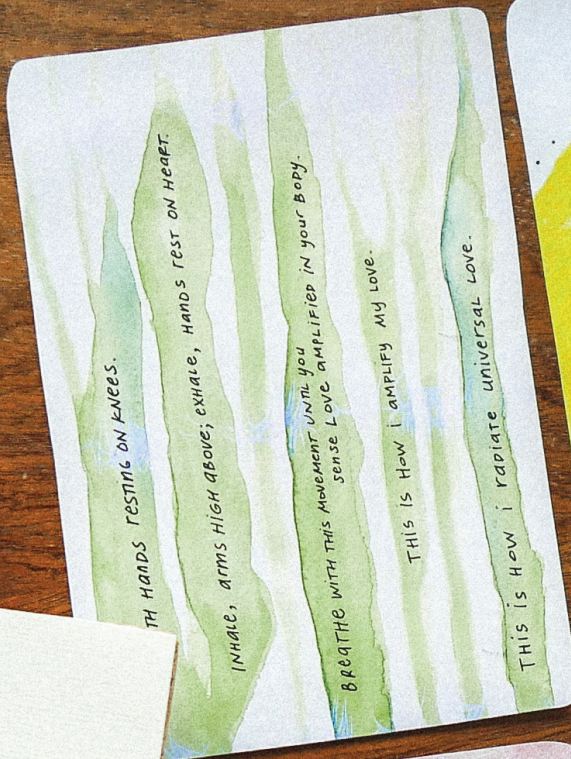 TH HANDS RESTING ON KNEES.
INHALE, ARMS HIGH ABOVE; EXHALE, HANDS REST ON HEART.
BREATHE WITH THIS MOVEMENT UNTIL YOU
SENSE LOVE AMPLIFIED IN YOUR BODY.
THIS IS HOW i AMPLIFY MY LOVE.
THIS IS HOW i RADIATE UNIVERSAL LOVE.